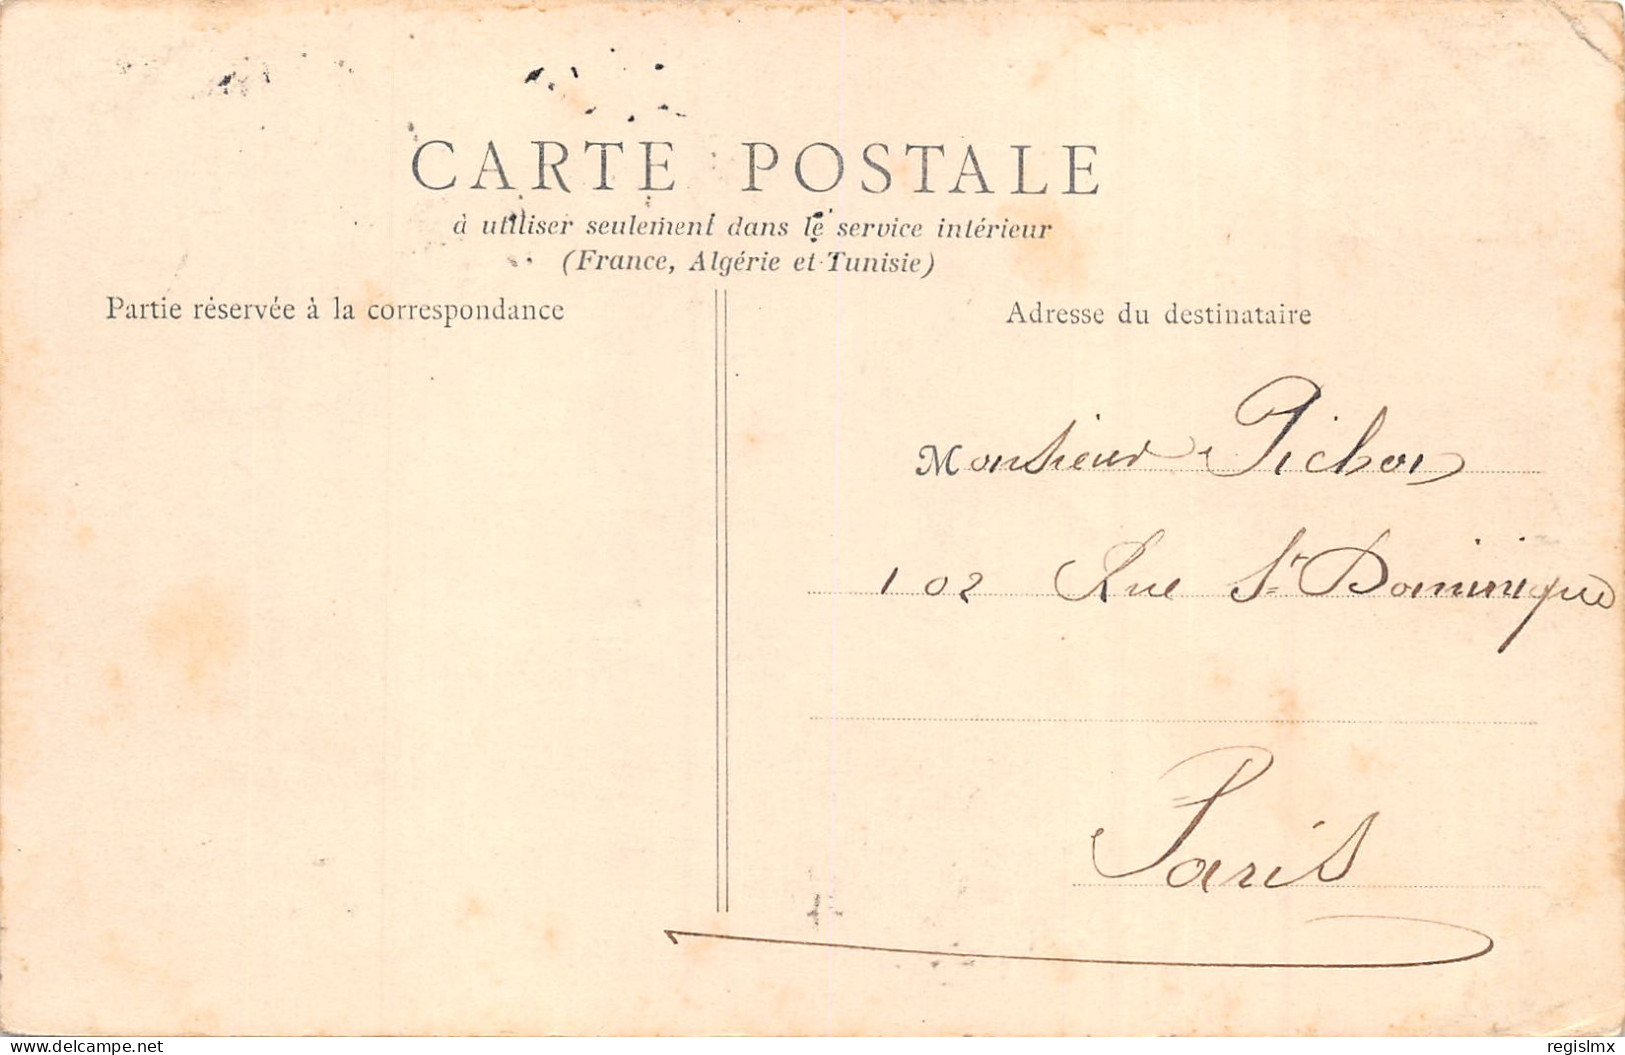 CARTE POSTALE
à utiliser seulement dans le service intérieur
(France, Algérie et Tunisie)
Partie réservée à la correspondance
Adresse du destinataire
Monsieur Pichon
102 Rue St Dominique
Paris
delcampe.net
regislmx